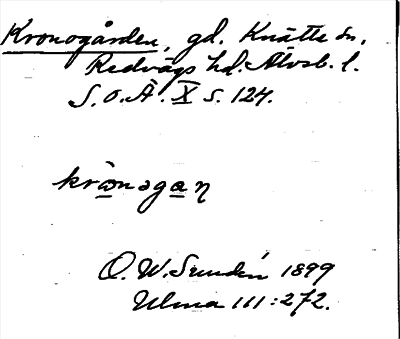 Kronogården, gd. Knätte sn,
Redvägs hd. Älvsb. l.
S.O.Ä. X s. 124.
krònogan
O. W. Sundén 1899
Ulma 111:272.